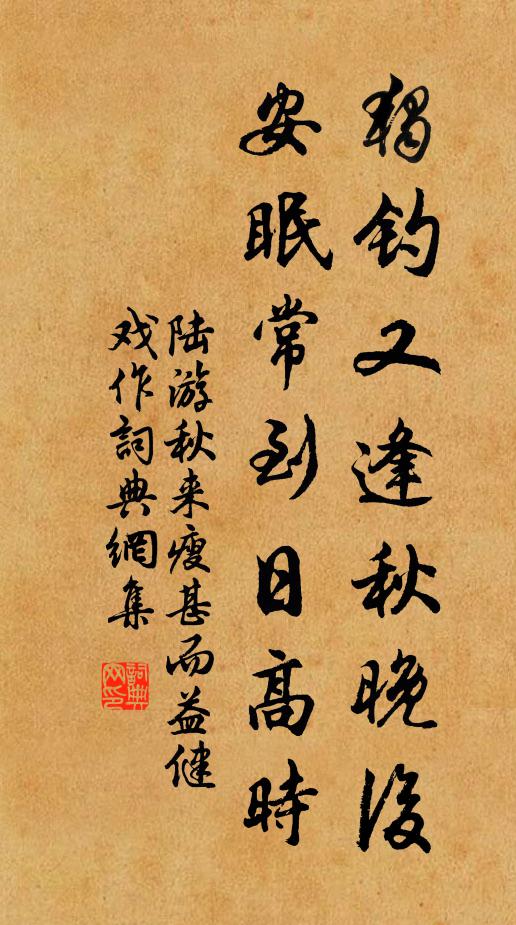 獨钓又逢秋晚後
安眠常到日高時
陆游秋来瘦甚而益健
戏作詞典網集
詞典网印